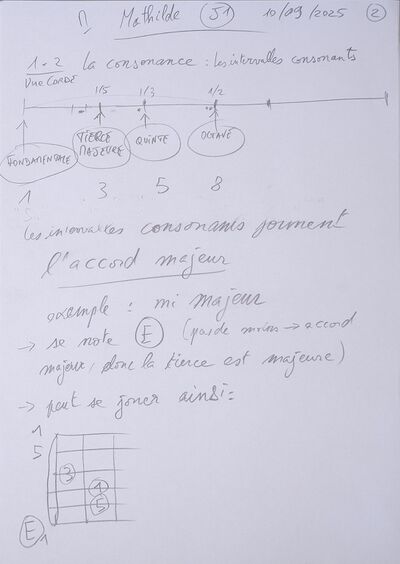 Mathilde (S1) 10/09/2025 (2)
1.2 la consonance : les intervalles consonants
Une CORDE
1/5 1/3 1/2
FONDAMENTALE TIERCE MAJEURE QUINTE OCTAVE
1 3 5 8
les intervalles consonants forment
l'accord majeur
exemple : mi majeur
→ se note (E) (pas de moins → accord
majeur, donc la tierce est majeure)
→ peut se jouer ainsi :
1
5
3
1
5
E 1